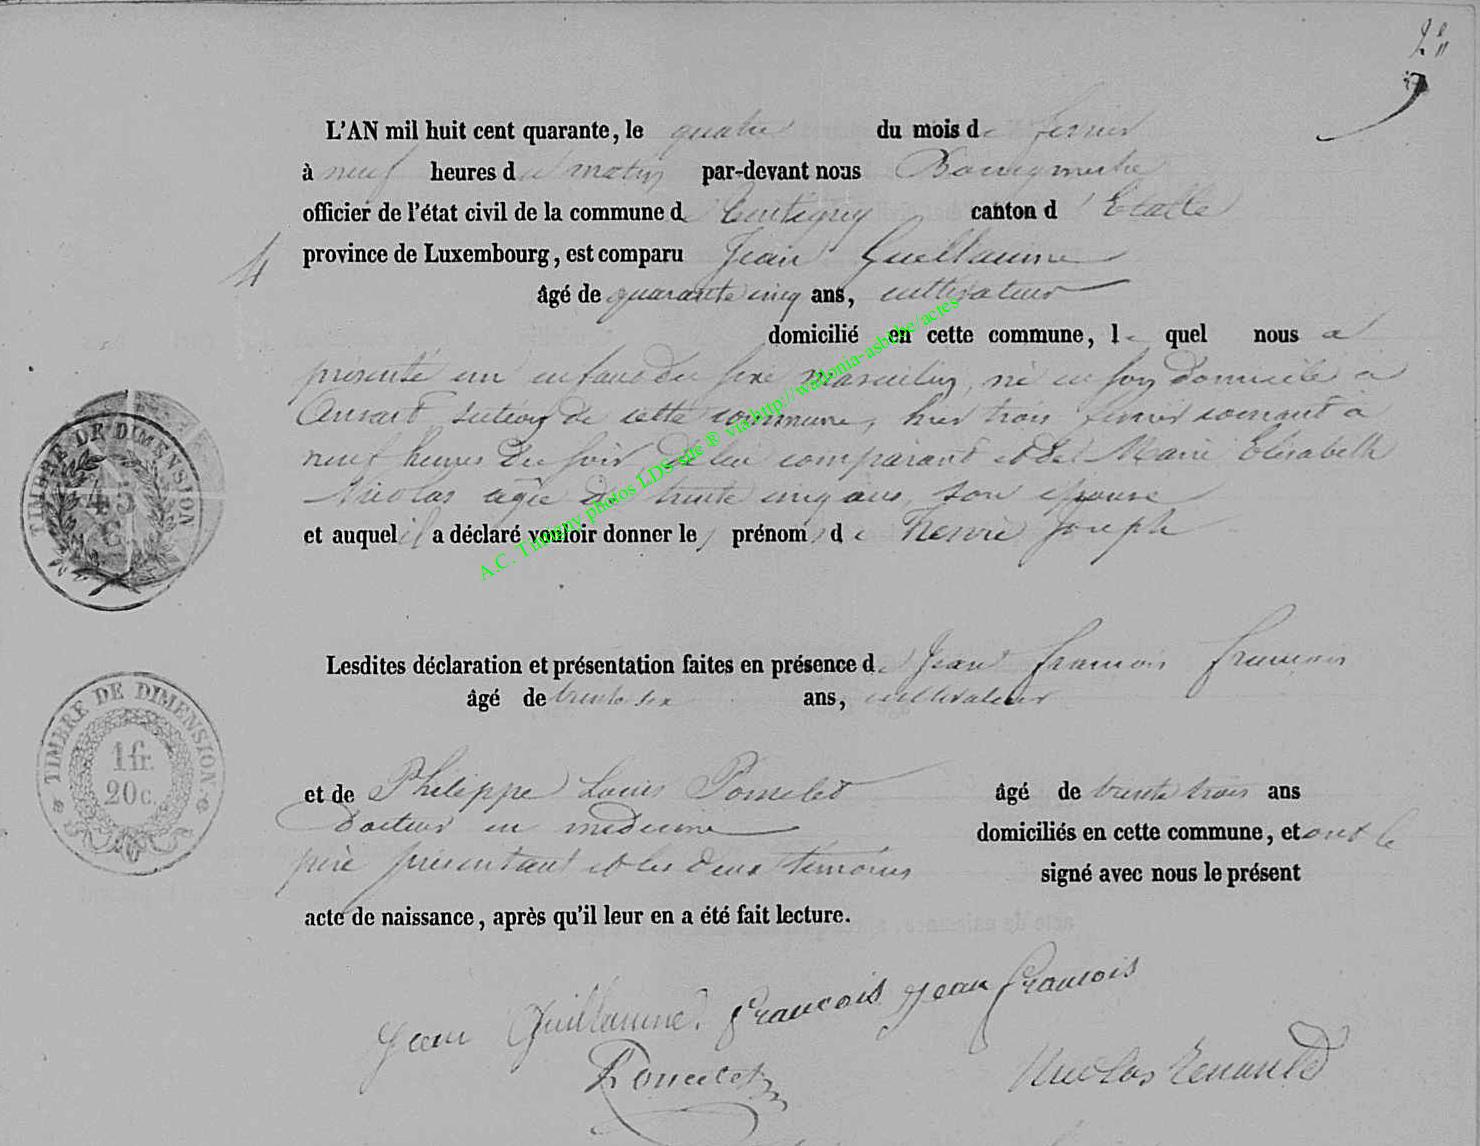 2
L'AN mil huit cent quarante, le quatre du mois de fevrier
à neuf heures du matin par-devant nous Bourgmestre
officier de l'état civil de la commune de Tintigny canton d'Etalle
4 province de Luxembourg, est comparu Jean Guillaume
âgé de quarante cinq ans, cultivateur
domicilié en cette commune, le quel nous a
présenté un enfant du sexe masculin, né en son domicile à
Ansart section de cette commune, hier trois fevrier courant à
neuf heures du soir, de lui comparant et de Marie Elisabeth
Nicolas agée de trente cinq ans, son epouse
et auquel il a déclaré vouloir donner les prénoms de Henri Joseph
Lesdites déclaration et présentation faites en présence de Jean francois francois
âgé de trente six ans, cultivateur
et de Philippe Louis Poncelet âgé de trente trois ans
docteur en medecine domiciliés en cette commune, et ont le
père présentant et les deux témoins signé avec nous le présent
acte de naissance, après qu'il leur en a été fait lecture.
Jean Guillaume. francois jean francois
Poncelet Nicolas Renauld
TIMBRE DE DIMENSION
45 C
TIMBRE DE DIMENSION
1 fr.
20 c.
A.C. Tintigny photos LDS site ® via http://wallonia-asbl.be/actes